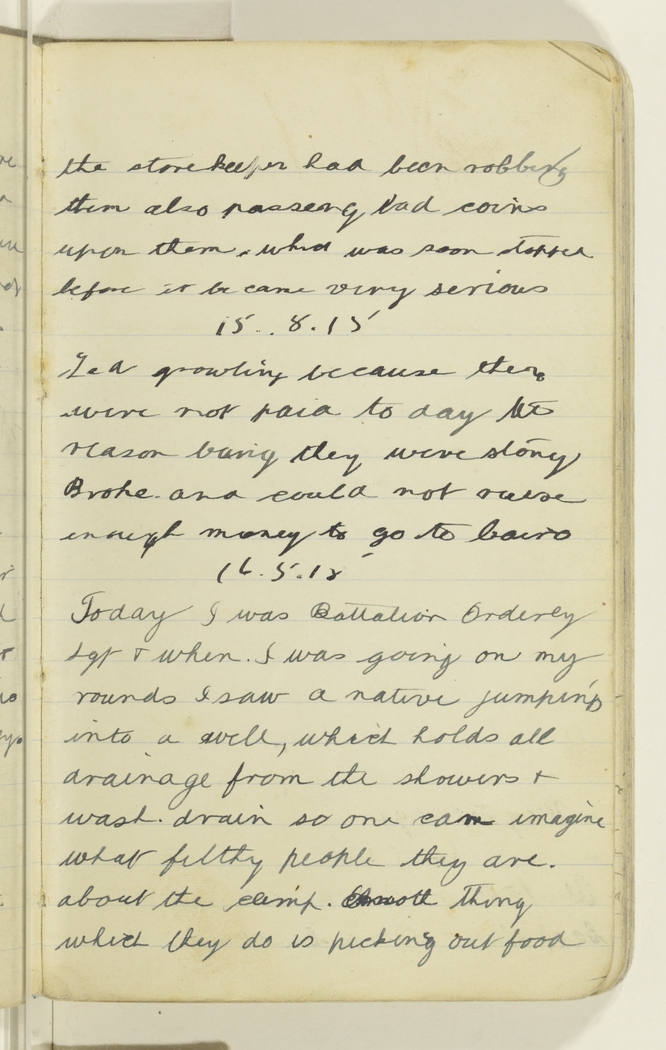 the storekeeper had been robbing
them also passeng bad coins
upon them, which was soon stopped
before it became very serious
15.8.15
Led growling because they
were not paid to day the
reason being they were stony
Broke and could not raise
enough money to go to Cairo
16.5.15
Today I was Battalion Orderly
Sgt & when I was going on my
rounds I saw a native jumping
into a well, which holds all
drainage from the showers &
wash. drain so one can imagine
what filthy people they are.
about the camp. thing
which they do is picking out food